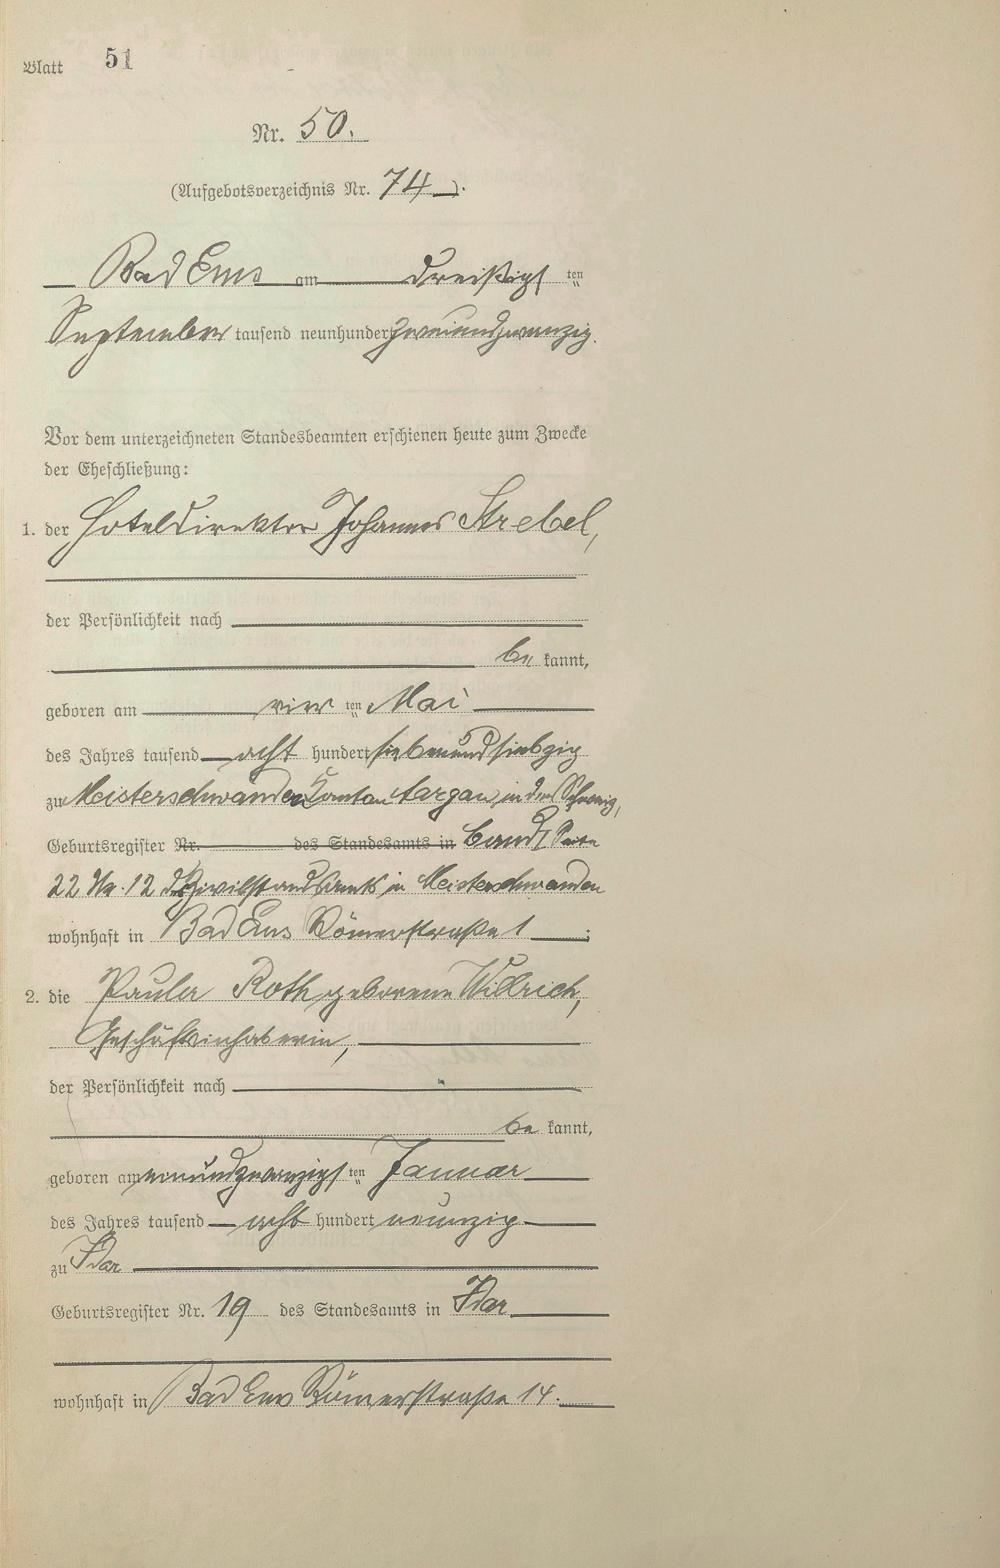 Blatt 51
Nr. 50.
(Aufgebotsverzeichnis Nr. 74).
Bad Ems am dreißigsten
September tausend neunhundert zweiundzwanzig.
Vor dem unterzeichneten Standesbeamten erschienen heute zum Zwecke
der Eheschließung:
1. der Hoteldirektor Johannes Strebel,
der Persönlichkeit nach
be kannt,
geboren am vierten Mai
des Jahres tausend acht hundert siebenundsiebzig
zu Meisterschwanden Kanton Aargau, in der Schweiz,
Geburtsregister Nr. des Standesamts in Band 1 Seite
22 Nr. 12 des Zivilstandsamts in Meisterschwanden
wohnhaft in Bad Ems Römerstraße 1;
2. die Paula Roth geborene Willrich,
Geschäftsinhaberin,
der Persönlichkeit nach
be kannt,
geboren am einundzwanzigsten Januar
des Jahres tausend acht hundert neunzig
zu Idar
Geburtsregister Nr. 19 des Standesamts in Idar
wohnhaft in Bad Ems Römerstraße 14.